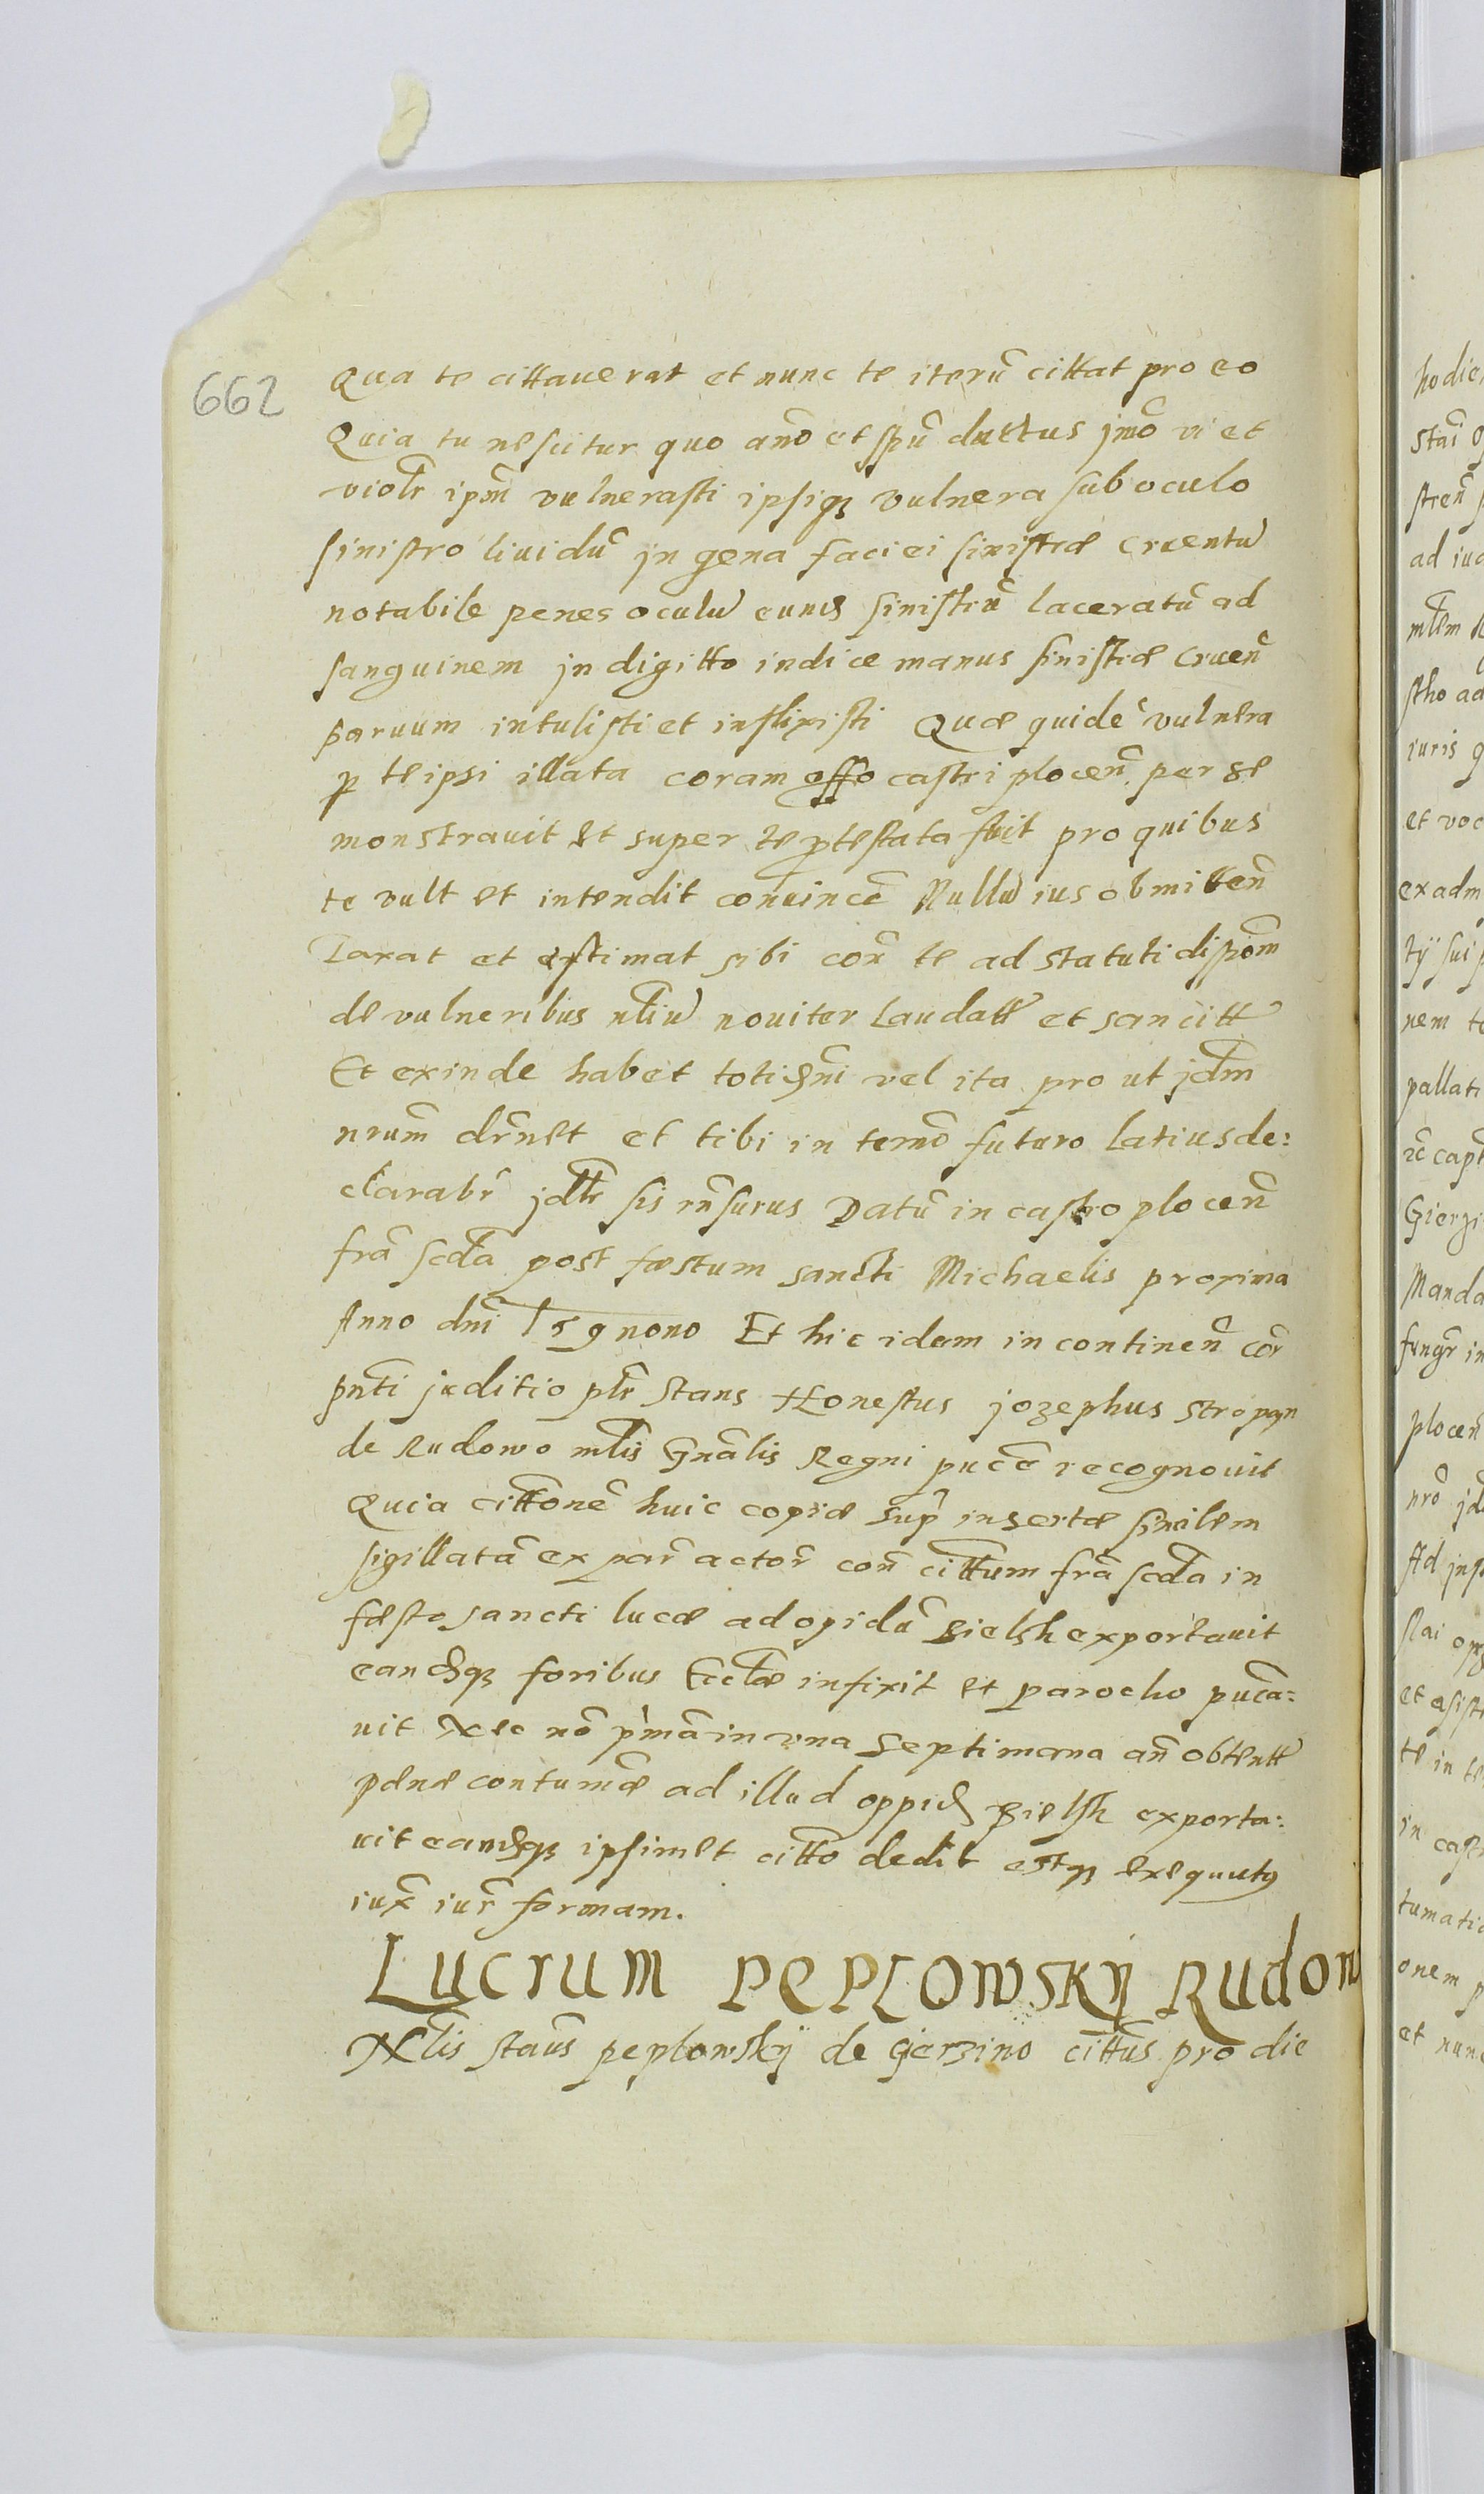 662
Qua te cittauerat et nunc te iterũ cittat pro eo
Quia tu nescitur quo anõ et spũ ductus jmõ vi et
violr̃ ipm̃ vulnerasti ipsiqȝ vulnera sub oculo
sinistro liuidũ jn gena faciei sinistræ cruentũ
notabile penes oculũ eund sinistrũ laceratũ ad
sanguinem jn digitto indice manus sinistræ cruen̄
paruum intulisti et inflixisti Quæ quidẽ vulnera
p te ipsi illata coram offo castri plocen̄ per se
monstrauit et super te ptestata fuit pro quibus
te vult et intendit conuincẽ Nullũ ius obmitten̄
Taxat et estimat sibi cor̃ te ad statuti dispom̃
de vulneribus nliũ nouiter laudatt et sancitt
Et exinde habet totidm̃ vel ita pro ut jdm̃
nrum̃ dr̃net et tibi in termõ futuro latius de:
clarabr̃ jdtr̃ sis rñsurus Datũ in castro plocen̄
frã scda post fæstum sancti Michaelis proxima
Anno dni 159 nono Et hic idem in continen̄ cor̃
pnti juditio ptr̃ stans Honestus jozephus stropyn
de Rudowo mlis Gnãlis Regni pucẽ recognouit
Quia cittõnẽ huic copiæ sup̃ insertæ similem
sigillatã ex par̃ actor̃ con̄ cittum frã scda in
fæsto sancti lucæ ad opidũ Bielsk exportauit
eandqȝ foribus Ecclæ infixit et parocho pucã:
uit Nec nõ p̃mã in vna septimana an̄ obtentt
pænæ contumæ ad illud oppid Bielsk exporta:
uit eandqȝ ipsimet citto dedit estqȝ exequutꝯ
iux̃ iur̃ formam.
Lucrum PEPLOWSKY Rudow
Nlis stãus peplowskÿ de Gierzino cittũs pro die
hodie
ad iu
iuris
et voc
ex adm
nem te
pallati
Giergi
Manda
plocen̄
et asist
te in te
in cast
tumati
onem p
et nunc